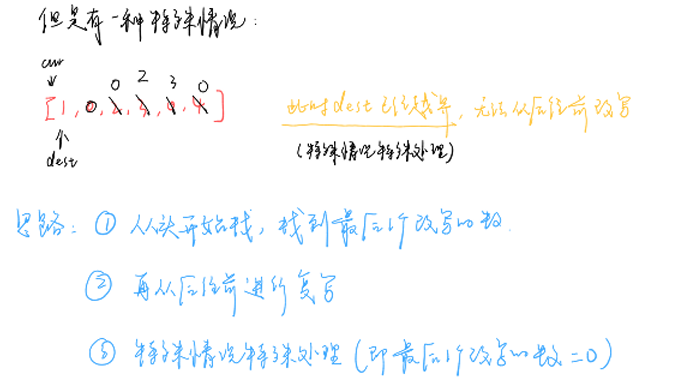 但是有一种特殊情况：
cur
0 2 3 0
[1, 0, 2, 3, 0, 4]
dest
此时dest已经越界，无法从后往前改写
(特殊情况特殊处理)
思路：① 从头开始找，找到最后1个改写的数.
② 再从后往前进行复写
③ 特殊情况特殊处理(即最后1个改写的数=0)